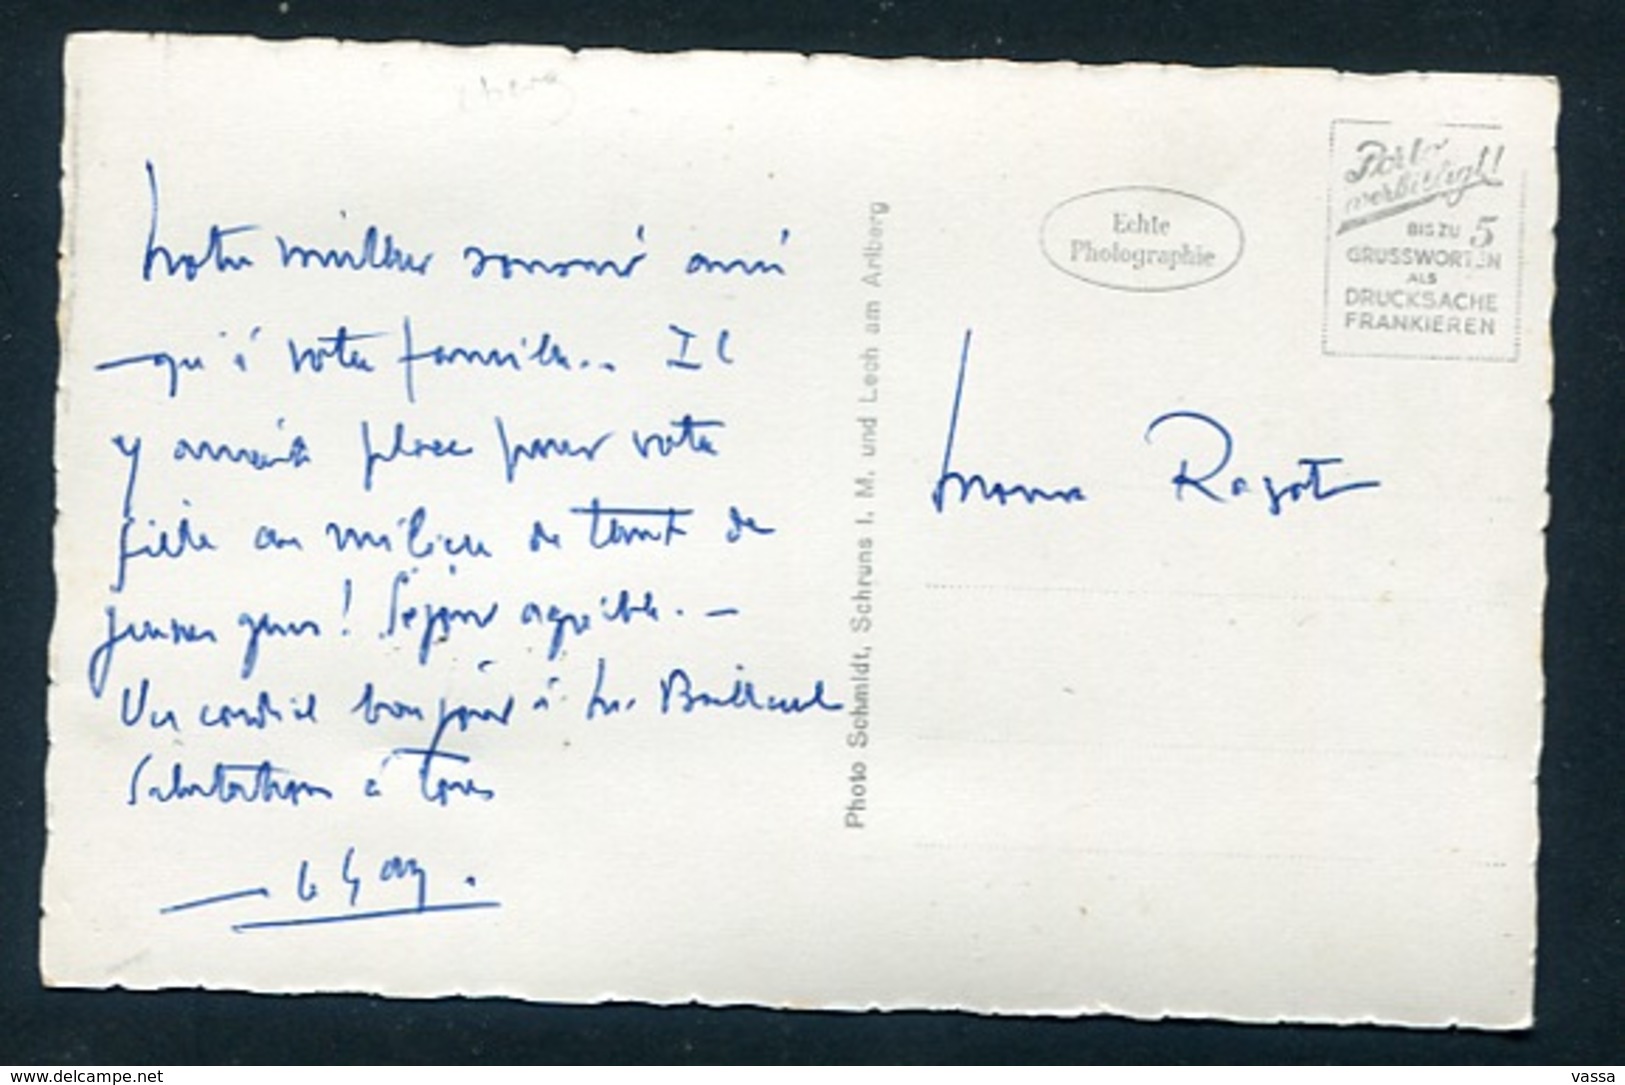 Notre meilleur souvenir ainsi
qu'à votre famille.. Il
y aurait place pour votre
fille au milieu de tant de
jeunes gens ! Séjour agréable. -
Un cordial bonjour à M.
Salutations à tous
Photo Schmidt, Schruns I. M. und Lech am Arlberg
Echte
Photographie
Porto
verbilligt!
BIS ZU 5
GRUSSWORTEN
ALS
DRUCKSACHE
FRANKIEREN
delcampe.net
vassa